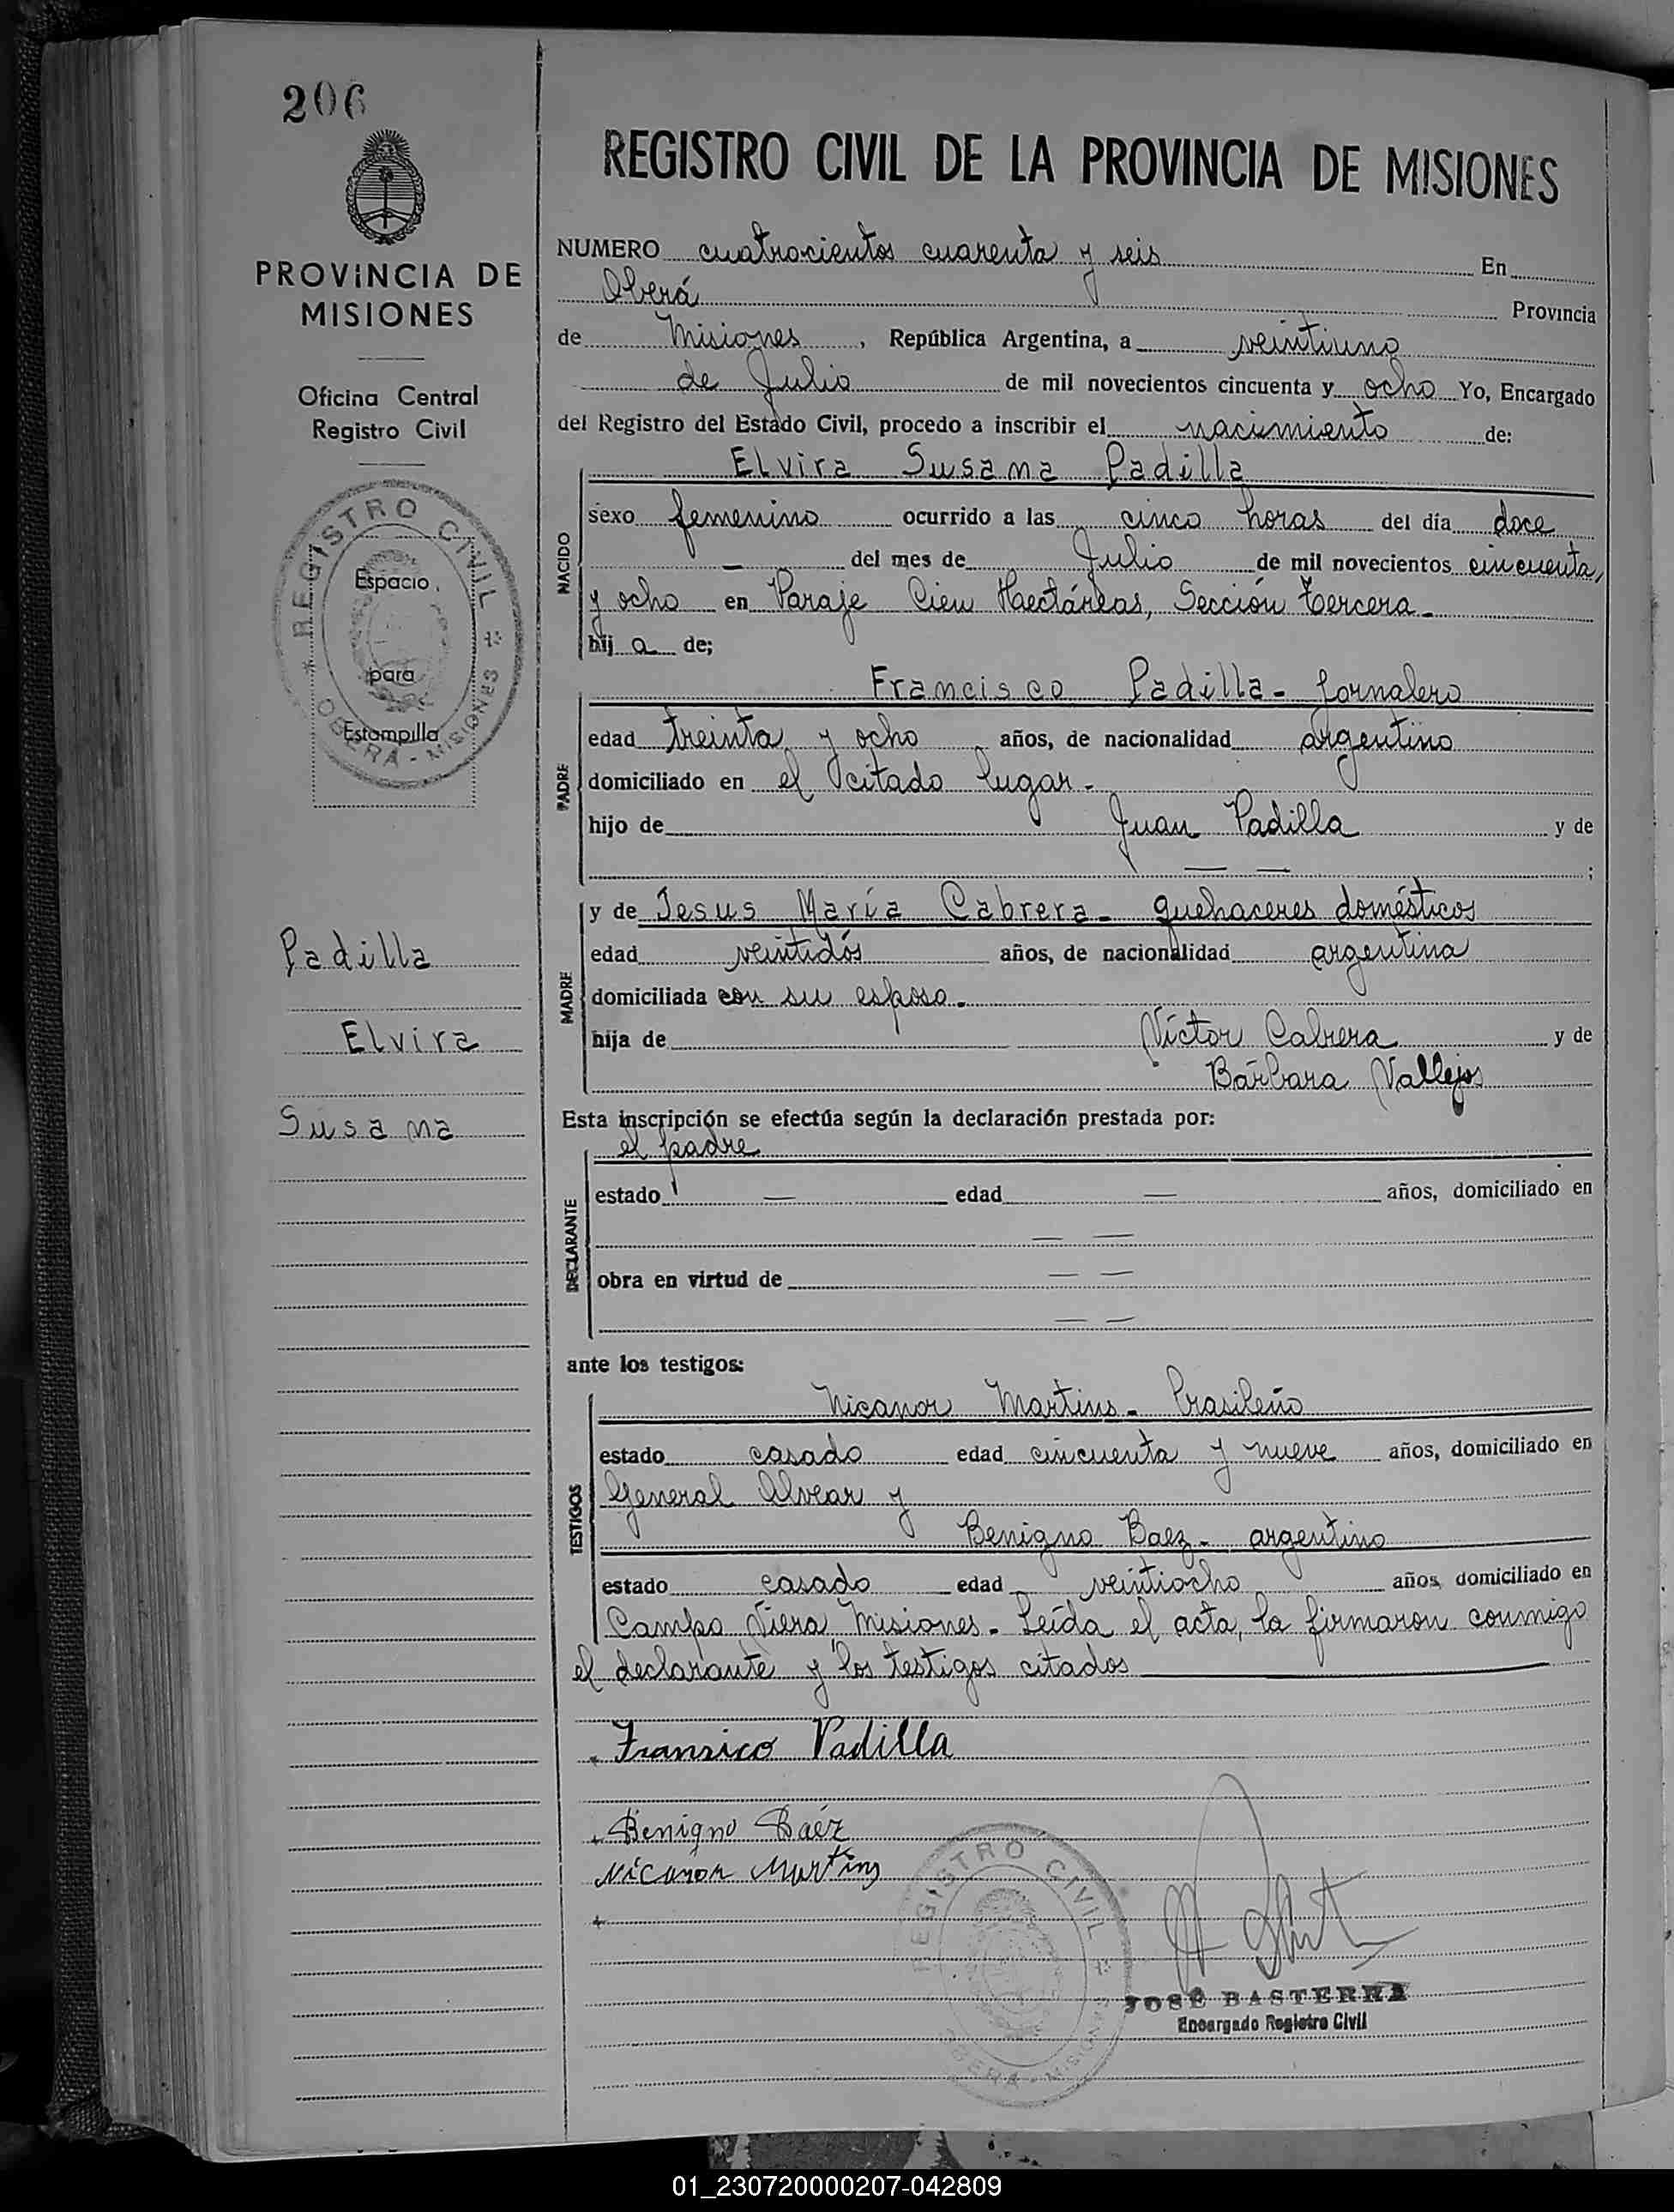 206
PROVINCIA DE
MISIONES
Oficina Central
Registro Civil
REGISTRO CIVIL
OBERA - MISIONES
Espacio
para
Estampilla
Padilla
Elvira
Susana
REGISTRO CIVIL DE LA PROVINCIA DE MISIONES
NUMERO cuatrocientos cuarenta y seis En
Oberá Provincia
de Misiones, República Argentina, a veintiuno
de Julio de mil novecientos cincuenta y ocho Yo, Encargado
del Registro del Estado Civil, procedo a inscribir el nacimiento de:
Elvira Susana Padilla
NACIDO
sexo femenino ocurrido a las cinco horas del día doce
— del mes de Julio de mil novecientos cincuenta
y ocho en Paraje Cien Haectáreas, Sección Tercera.-
hij a de;
Francisco Padilla - Jornalero
PADRE
edad treinta y ocho años, de nacionalidad argentino
domiciliado en el citado lugar.-
hijo de Juan Padilla y de
— — ;
y de Jesus María Cabrera - quehaceres domésticos
MADRE
edad veintidós años, de nacionalidad argentina
domiciliada con su esposo.-
hija de Víctor Cabrera y de
Bárbara Vallejos
Esta inscripción se efectúa según la declaración prestada por:
el padre
DECLARANTE
estado — edad — años, domiciliado en
— —
obra en virtud de — —
— —
ante los testigos:
Nicanor Martins - brasileño
TESTIGOS
estado casado edad cincuenta y nueve años, domiciliado en
General Alvear y
Benigno Baez - argentino
estado casado edad veintiocho años, domiciliado en
Campo Viera, Misiones.- Leída el acta, la firmaron conmigo
el declarante y los testigos citados
Fransico Padilla
Benigno Báez
Nicanor Martins
REGISTRO CIVIL
OBERA - MISIONES
JOSÉ BASTERRA
Encargado Registro Civil
01_230720000207-042809